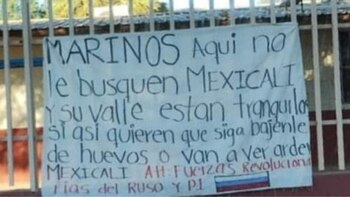 MARINOS Aqui no
le busquen MEXICALI
Y su valle estan tranquilos
si asi quieren que siga bajenle
de huevos o van a ver arder
MEXICALI Att: Fuerzas Revoluciona
rias del RUSO Y P.I